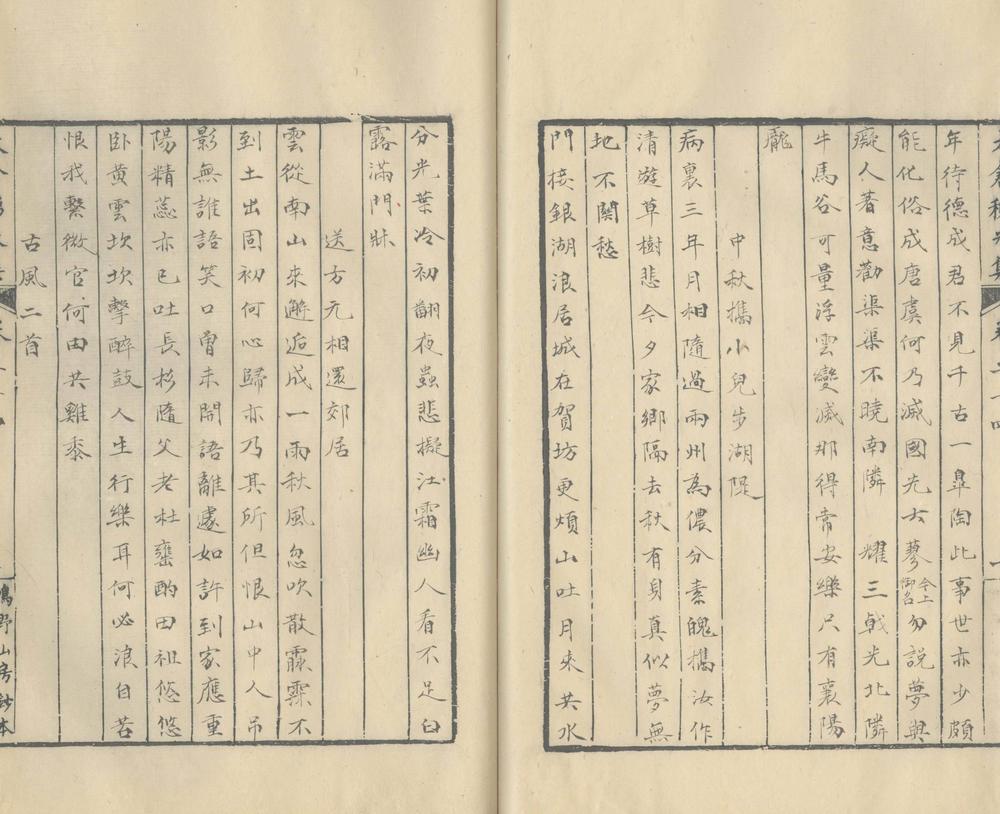 年待德成君不見千古一臯陶此事世亦少頗
能化俗成唐虞何乃滅國先六蓼今上御名勿說夢與
癡人著意勸渠渠不曉南隣 耀三戟光北隣
牛馬谷可量浮雲變滅那得常安樂只有襄陽
龐
中秋攜小兒步湖隄
病裏三年月相隨過兩州為儂分素魄攜汝作
清遊草樹悲今夕家鄉隔去秋有身真似夢無
地不關愁
門接銀湖浪居城在賀坊更煩山吐月來共水
分光葉冷初翻夜蟲悲擬泣霜幽人看不足白
露滿門牀
送方元相還郊居
雲從南山來邂逅成一雨秋風忽吹散霢霂不
到土出固初何心歸亦乃其所但恨山中人吊
影無誰語笑口曾未開語離遽如許到家應重
陽精蕊亦已吐長杉隨父老杜甕酌田祖悠悠
卧黃雲坎坎擊醉鼓人生行樂耳何必浪自苦
恨我繫微官何由共雞黍
古風二首
鳴野山房鈔本